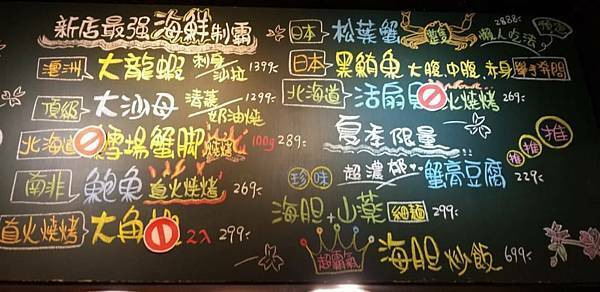 新店最强海鮮制霸
澳洲 大龍蝦 刺身 沙拉 1399.
頂級 大沙母 清蒸 奶油燒 1299.
北海道 鱈場蟹脚 燒烤 100g 289.
南非 鮑魚 直火燒烤 269.
直火燒烤 大角 2入 299.
日本 松葉蟹 雙隻 2888. 懶人吃法 預定
日本 黑鮪魚 大腹.中腹.赤身
北海道 活扇貝 火燒烤 269.
夏季限量!!
推推推
珍味 超濃郁 蟹膏豆腐 229.
海胆+山藥 細麵 299.
超霸氣 海胆炒飯 699.